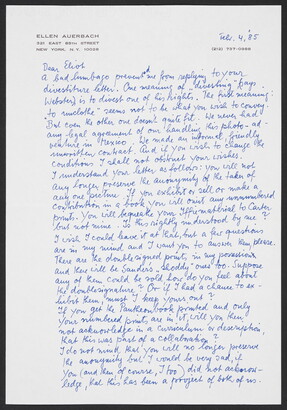 ELLEN AUERBACH
720 EAST 86TH STREET
NEW YORK, N.Y. 10028
(212) 737-0886
Feb. 4, 85
Dear Eliot
A bad lumbago prevented me from replying to your
divestiture letter. One meaning of "divesting" (says
Webster) is to divest one of his rights. The first meaning:
"to unclothe" seems not to be that you wish to convey.
But even the other one doesn't quite fit. We never had
any legal agreement of our handling this photo-ad-
venture in Mexico. We made an informal, friendly
unwritten contract. And if you wish to change the
conditions I shall not obstruct your wishes.
I understand your letter as follows: you will not
any longer preserve the anonymity of the taker of
any one picture. If you exhibit or sell or make a
contribution in a book you will omit any unnumbered
prints. You will bequeathe your material to Carter,
but not mine. Is this rightly understood by me?
I wish I could leave it at that, but a few questions
are in my mind and I want you to answer them please.
There are the double signed prints, in my possession
and there will be Sanders' "shoddy" ones too. Suppose
any of them could be sold, how do you feel about
the double signature? Or if I had a chance to ex-
hibit them, must I keep yours out?
If you get the Pantheon book printed and only
your numbered prints are in it, will you then
not acknowledge in a curriculum or description,
that this was part of a collaboration?
I do not mind, that you will no longer preserve
the anonymity but I would be very sad, if
you (and then of course, I too) did not acknow-
ledge, that this has been a project of both of us.